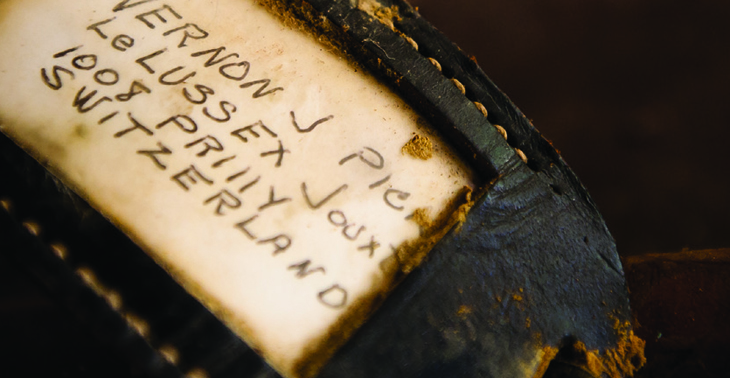 VERNON J PIC
Le LUSSEX
1008 PRILLY Joux
SWITZERLAND